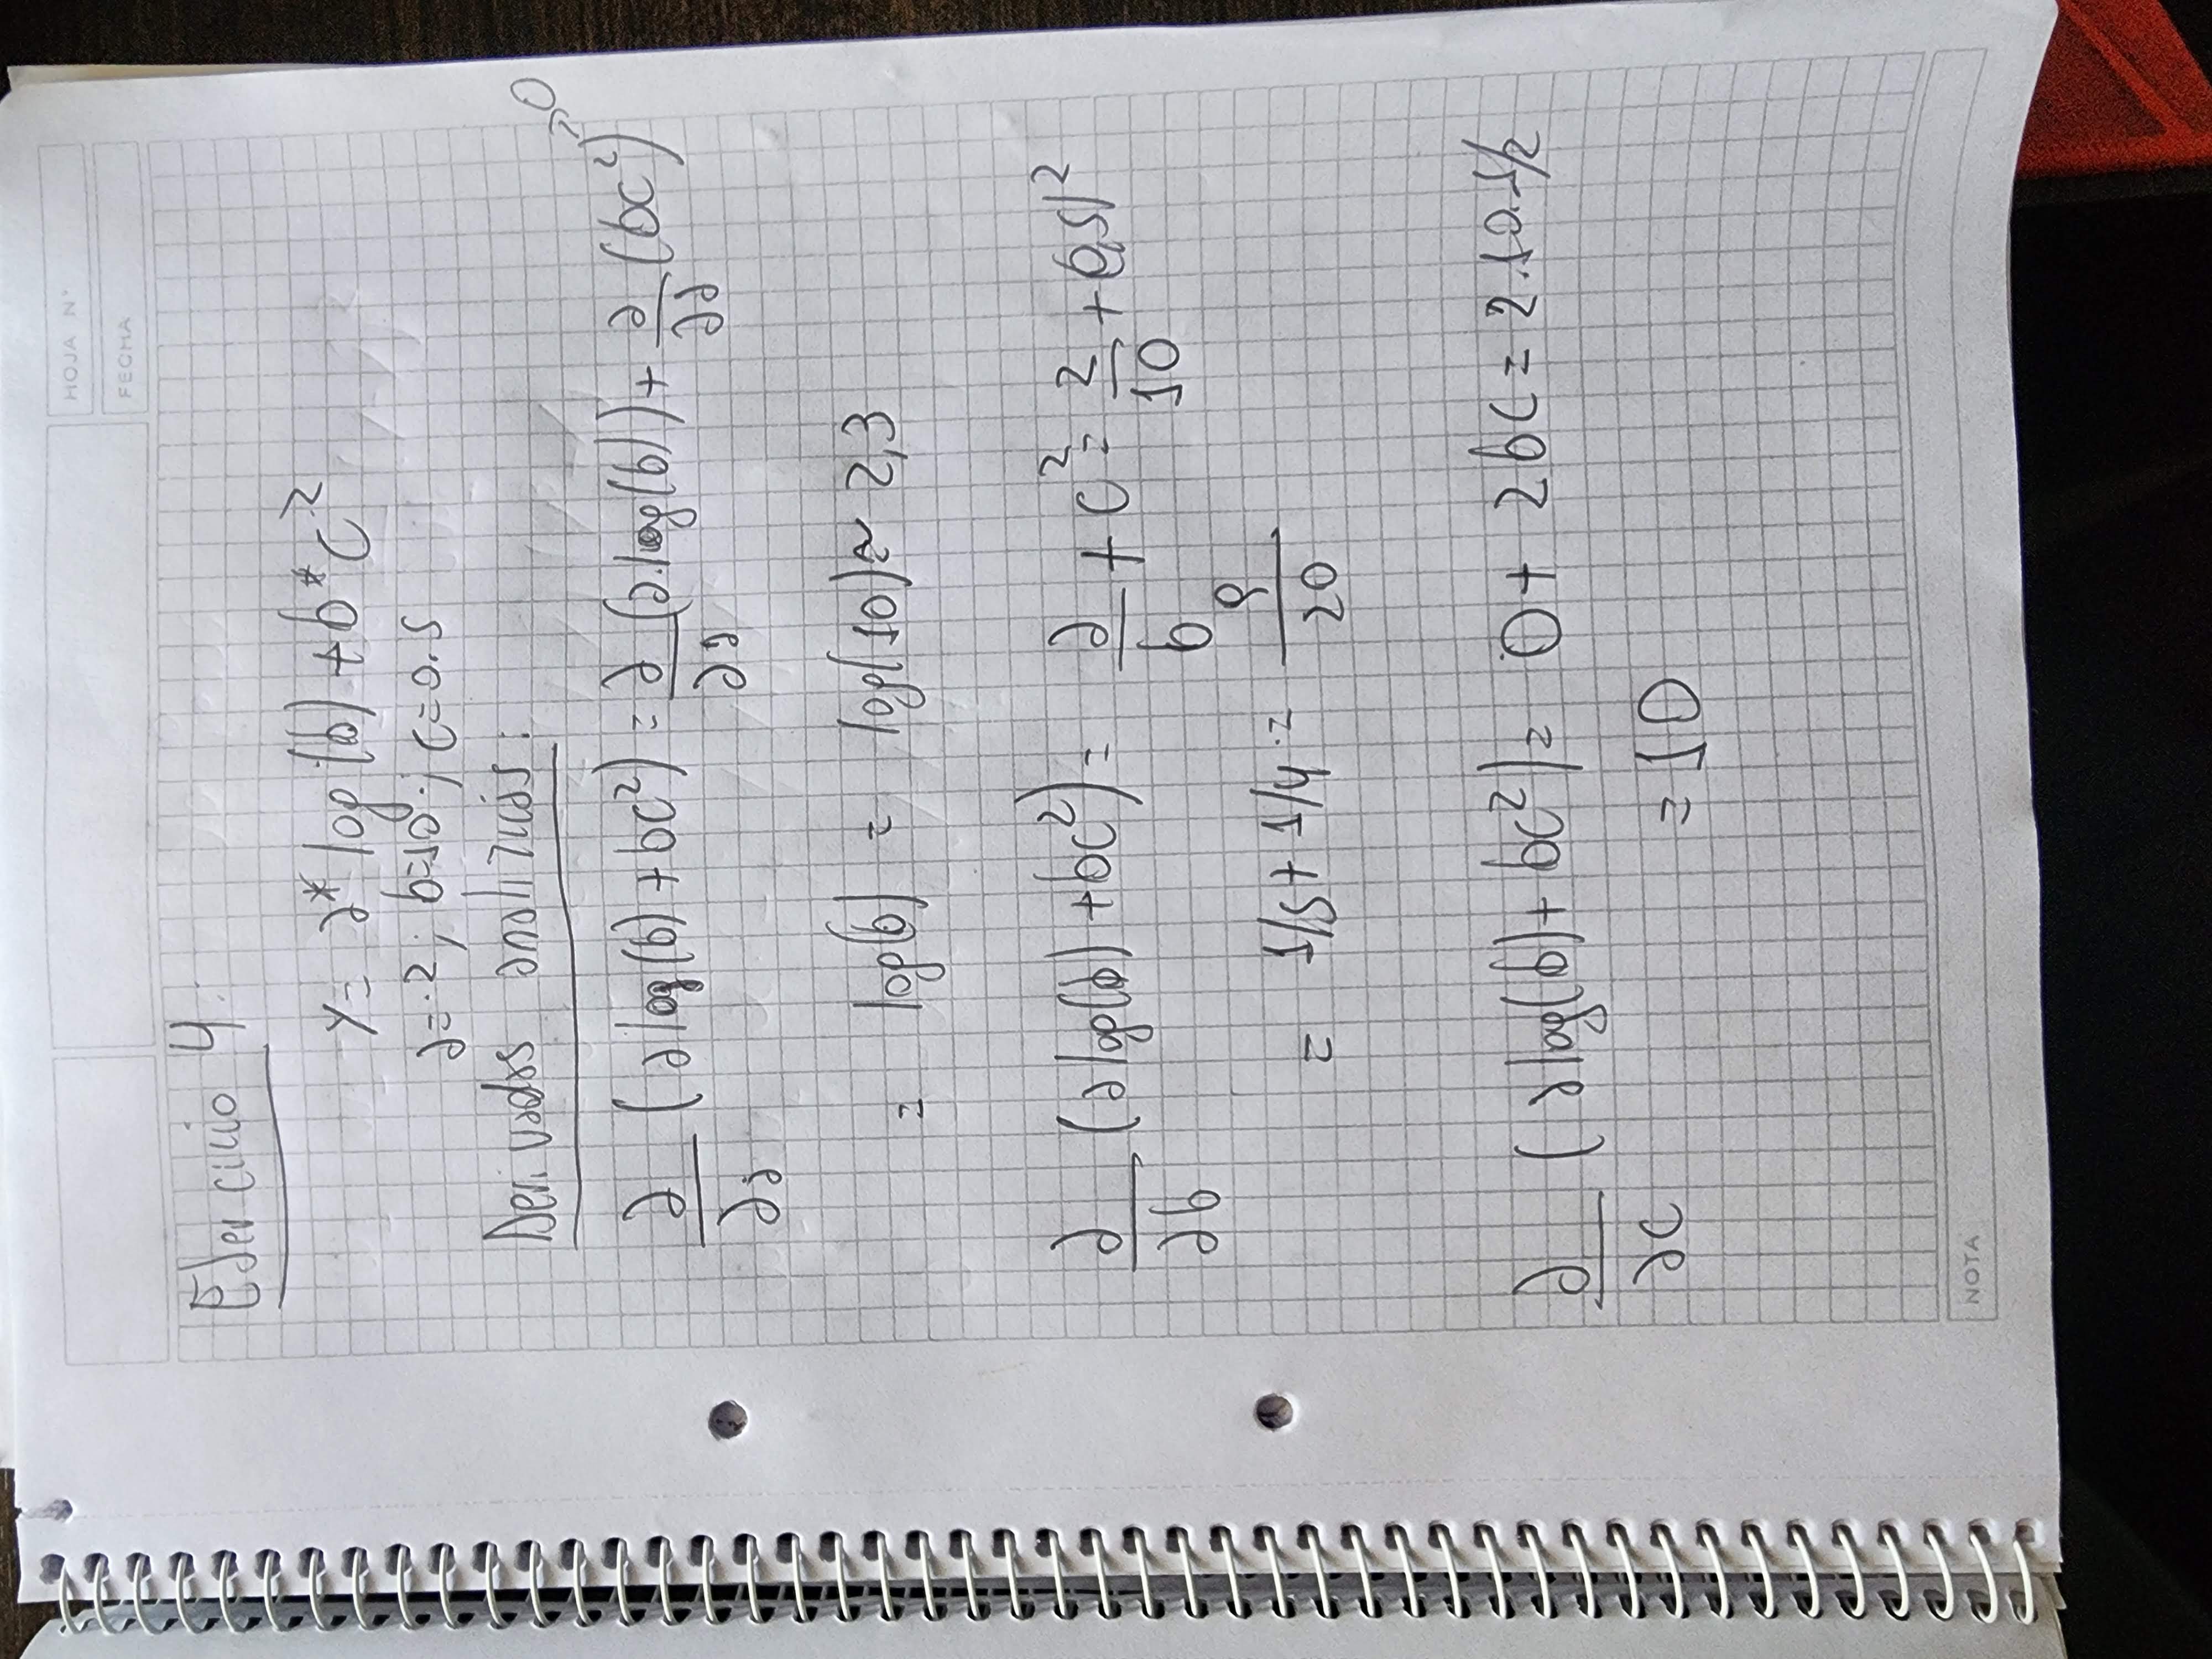 HOJA N°
FECHA
Ejercicio 4:
y = a * log(b) + b * c²
a = 2; b = 10; c = 0.5
Derivadas analíticas:
∂/∂a (a log(b) + bc²) = ∂/∂a (a.log(b)) + ∂/∂a (bc²) → 0
= log(b) = log(10) ≈ 2,3
∂/∂b (a log(b) + bc²) = a/b + c² = 2/10 + (0,5)²
= 1/5 + 1/4 = 9/20
∂/∂c (a log(b) + bc²) = 0 + 2bc = 2.10.1/2
= 10
NOTA